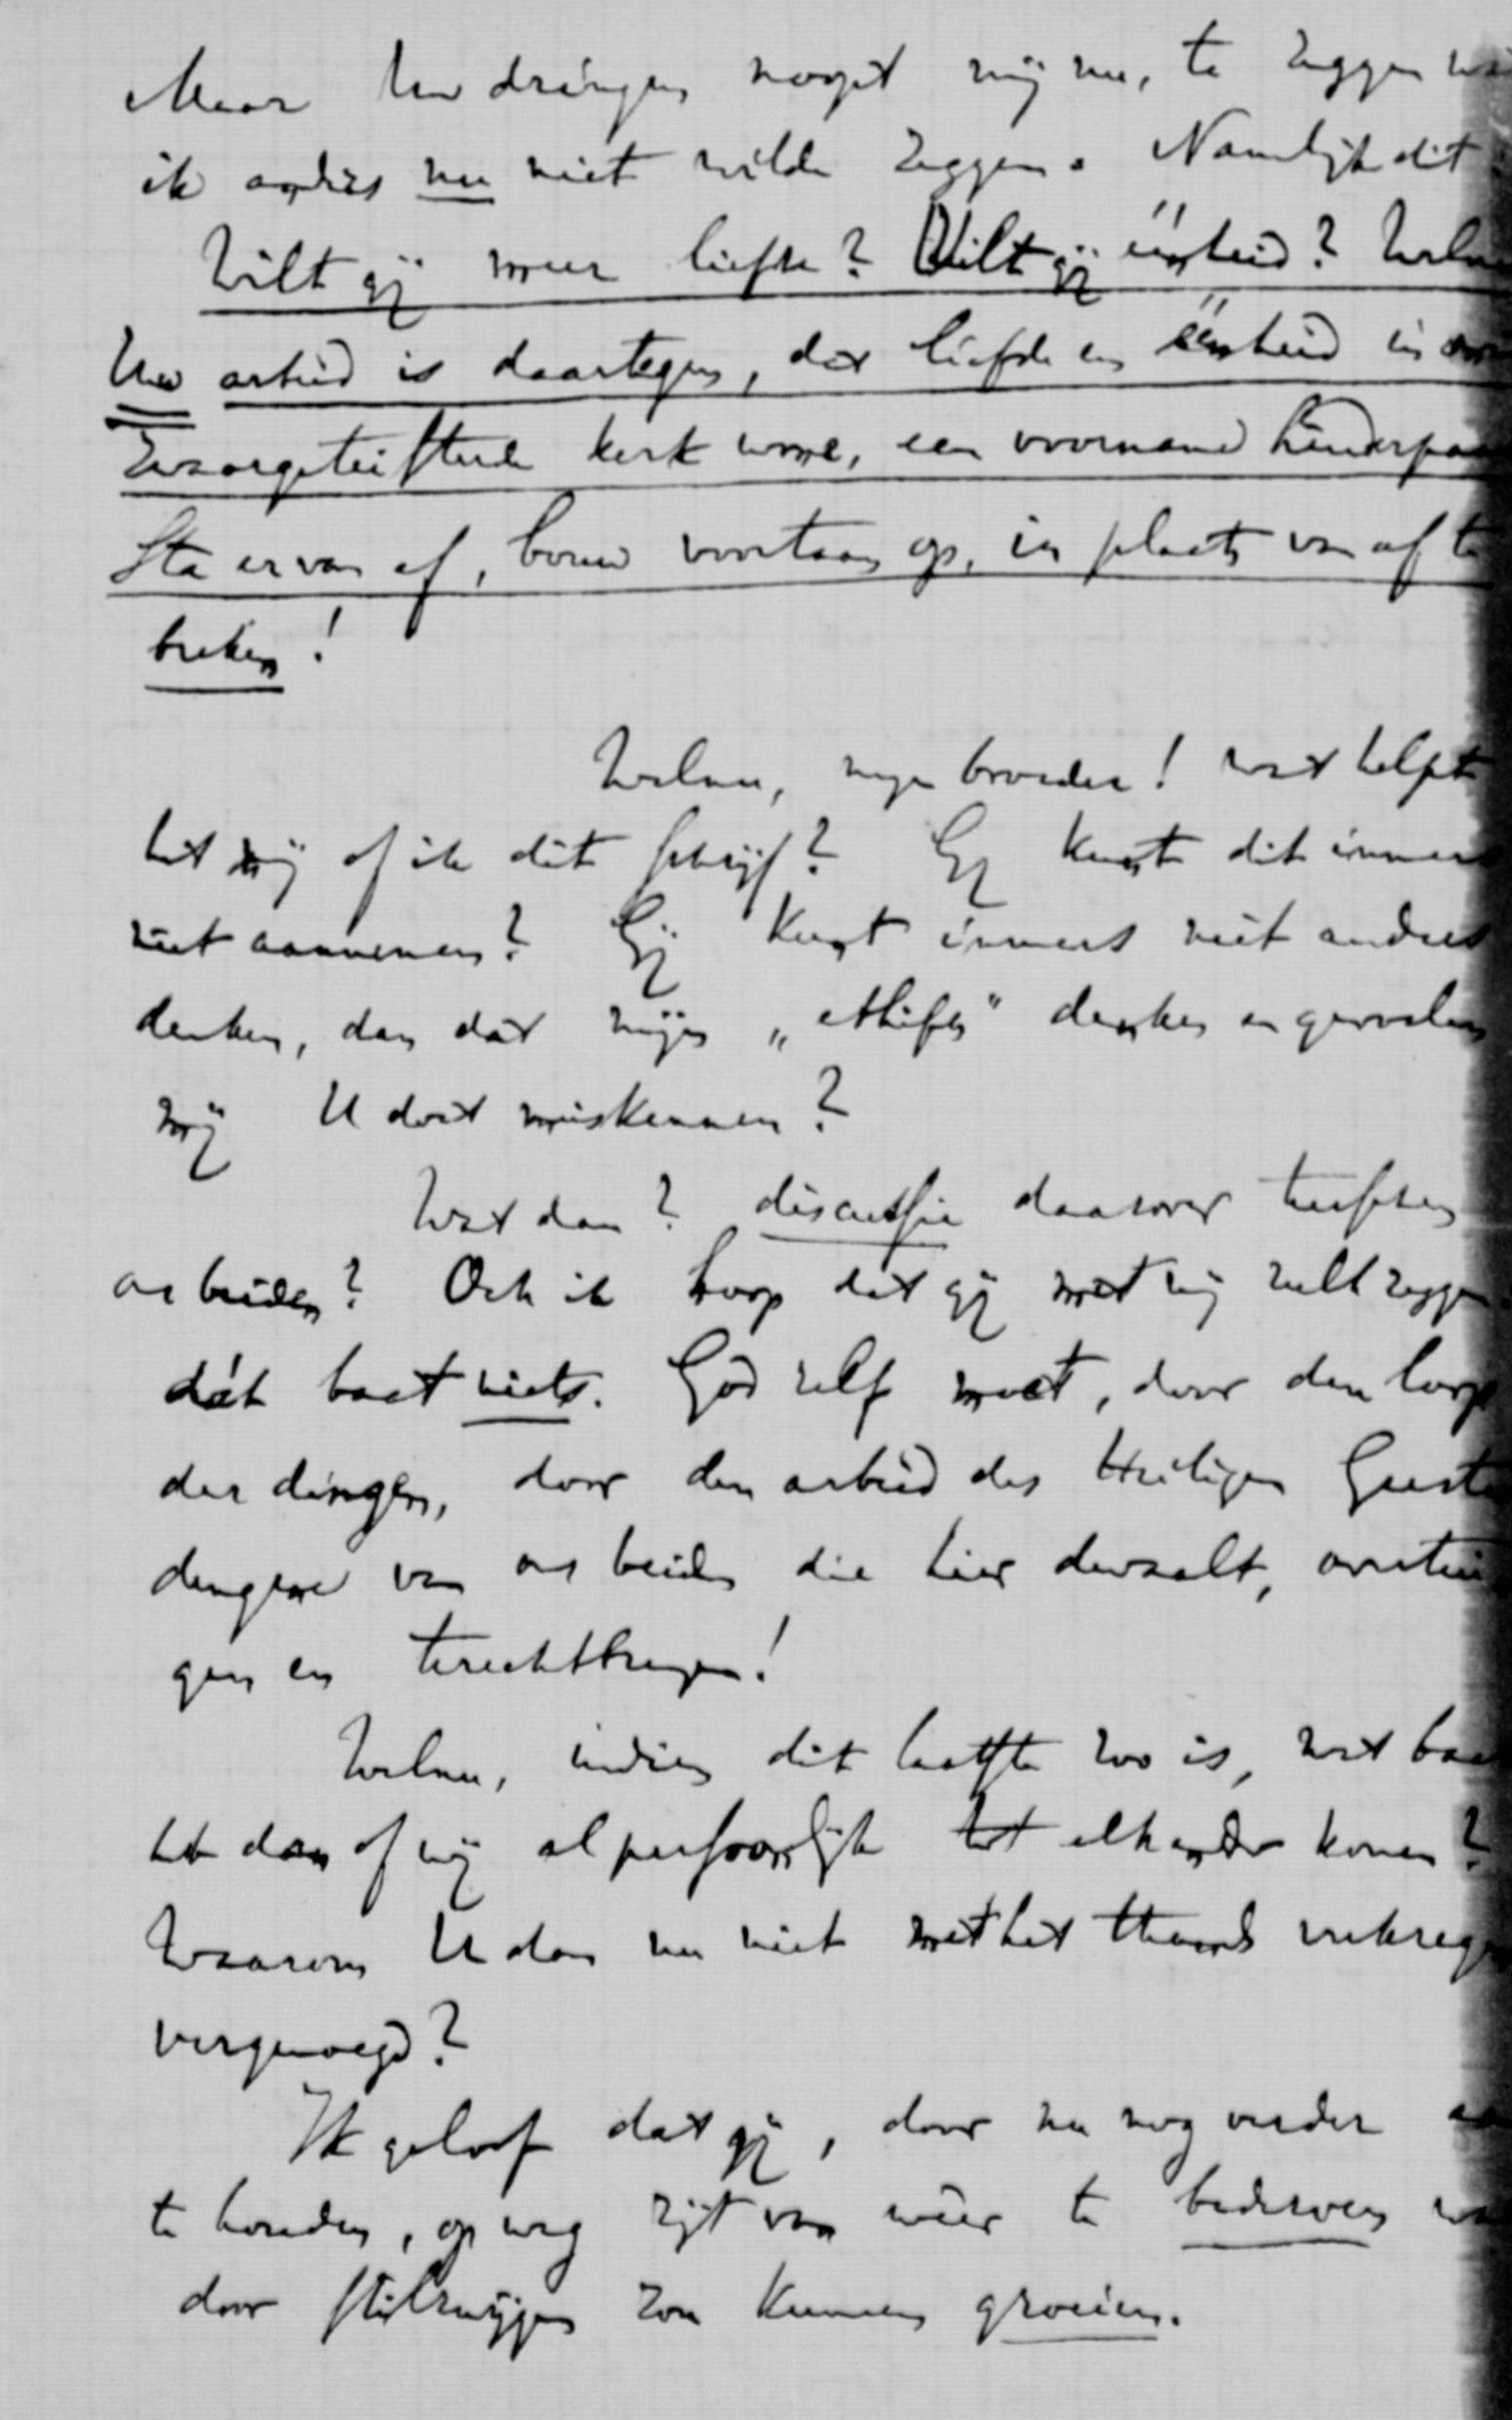 Maar Uw dringen noopt mij nu, te zeggen
ik anders nu niet wilde zeggen. Namelijk dit
Wilt gij meer liefde? Wilt gij éénheid? Welnu
Uw arbeid is daartegen, dat liefde en éénheid in
kerk wone, een voorname hinderpaal
Sta er van af, bouw voortaan op, in plaats van af te
breken!
Welnu, mijn broeder! wat helpt
het mij of ik dit schrijf? Gij kunt dit immers
niet aannemen? Gij kunt immers niet anders
denken, dan dat mijn „ethisch" denken en gevoelen
mij U doet miskennen?
Wat dan? discussie daarover tusschen
ons beiden? Och ik hoop dat gij met mij zult zeggen
dát baat niets. God zelf moet, door den loop
der dingen, door den arbeid des Heiligen Geestes
dengene van ons beiden die hier dwaalt, overtui
gen en terechtbrengen!
Welnu, indien dit laatste zoo is, wat baat
het dan of wij al persoonlijk tot elkander komen?
Waarom U dan nu niet met het thans verkregen
vergenoegd?
Ik geloof dat gij, door nu nog verder aan
te houden, op weg zijt van weer te bederven wat
door stilzwijgen zou kunnen groeien.